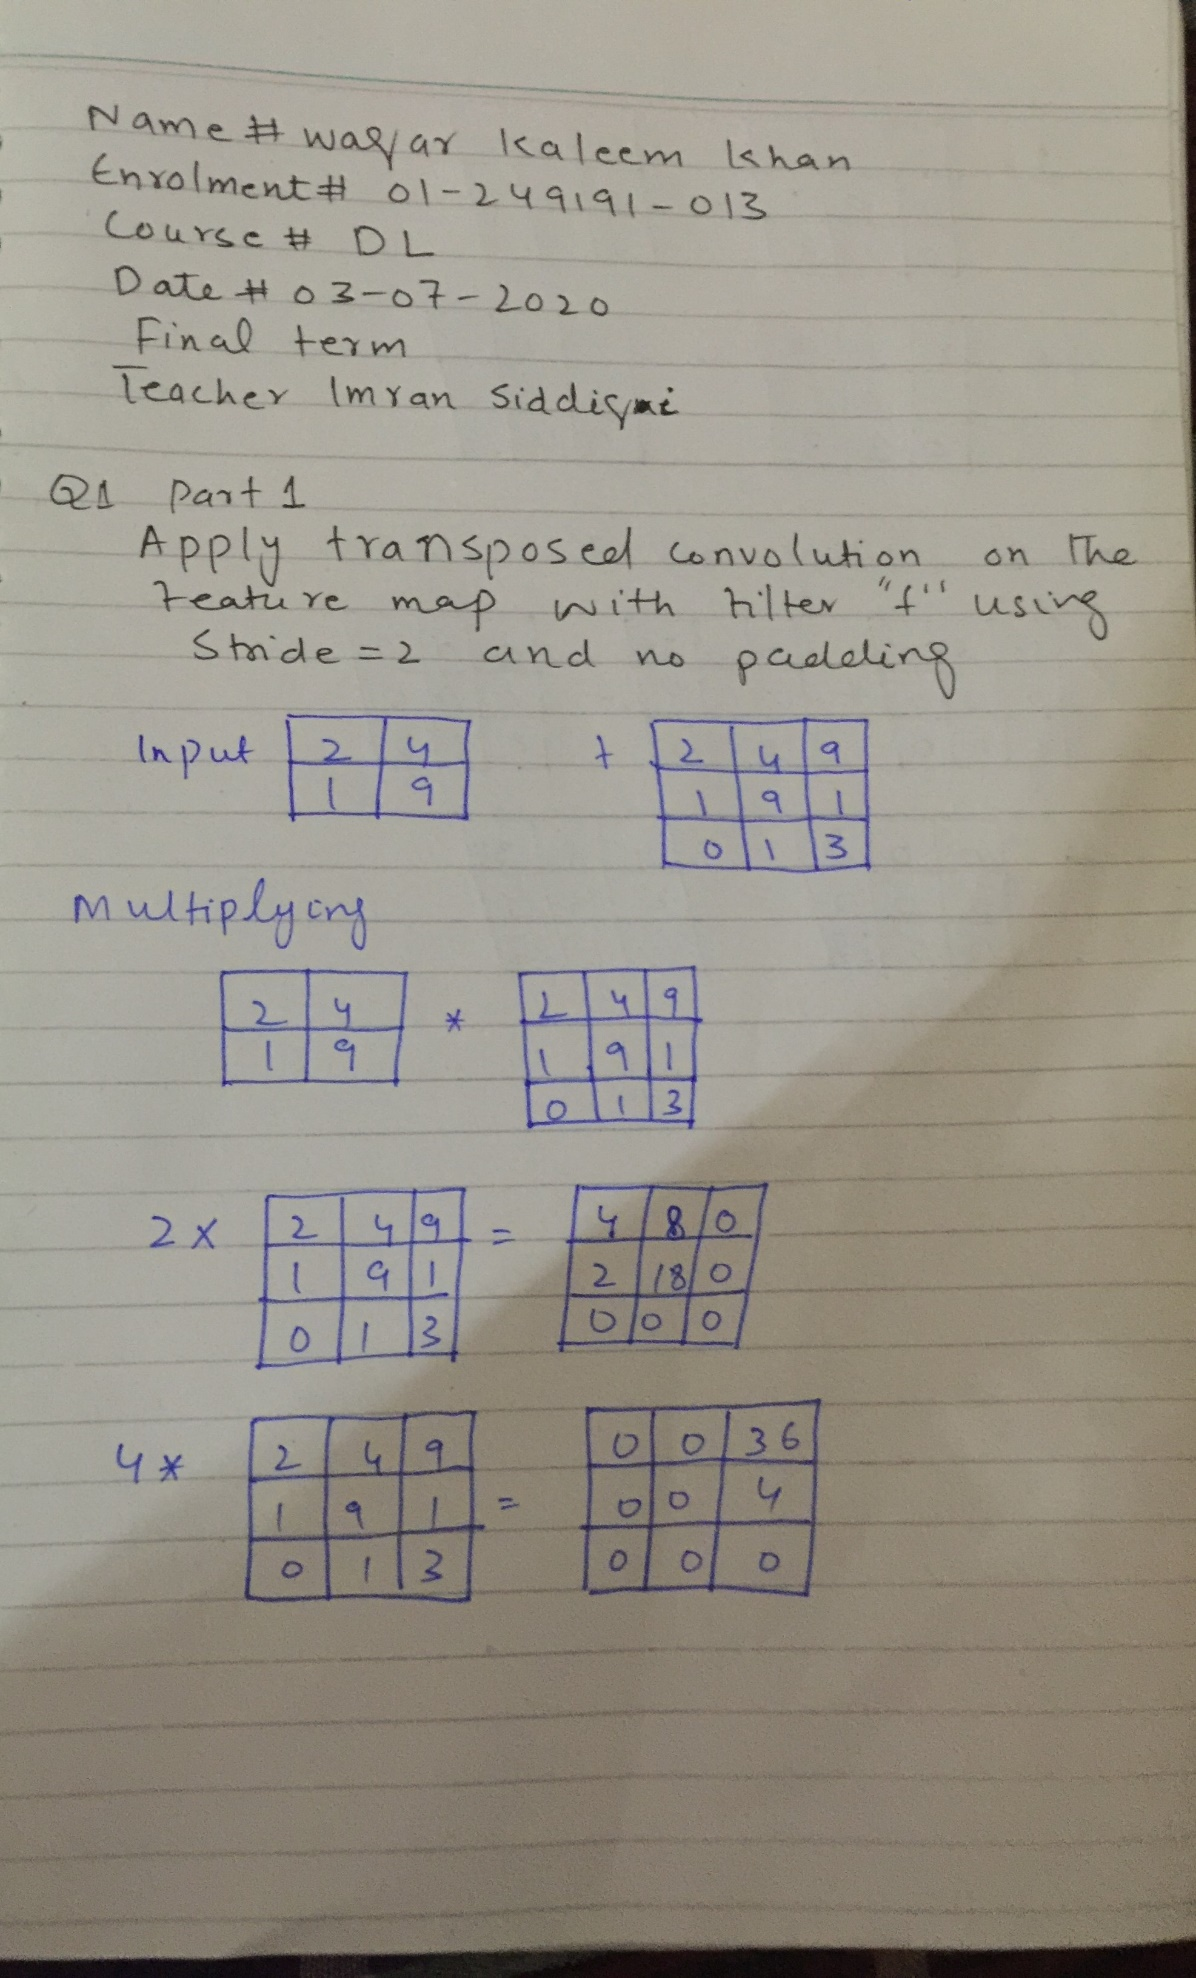 Name # Waqar Kaleem Khan
Enrolment # 01-249191-013
Course # DL
Date # 03-07-2020
Final term
Teacher Imran Siddiqui
Q1 Part 1
Apply transposed convolution on The
Feature map with filter "f" using
Stride = 2 and no padding
Input 2 4 f 2 4 9
1 9 1 9 1
0 1 3
Multiplying
2 4 * 2 4 9
1 9 1 9 1
0 1 3
2 x 2 4 9 = 4 8 0
1 9 1 2 18 0
0 1 3 0 0 0
4 * 2 4 9 = 0 0 36
1 9 1 0 0 4
0 1 3 0 0 0